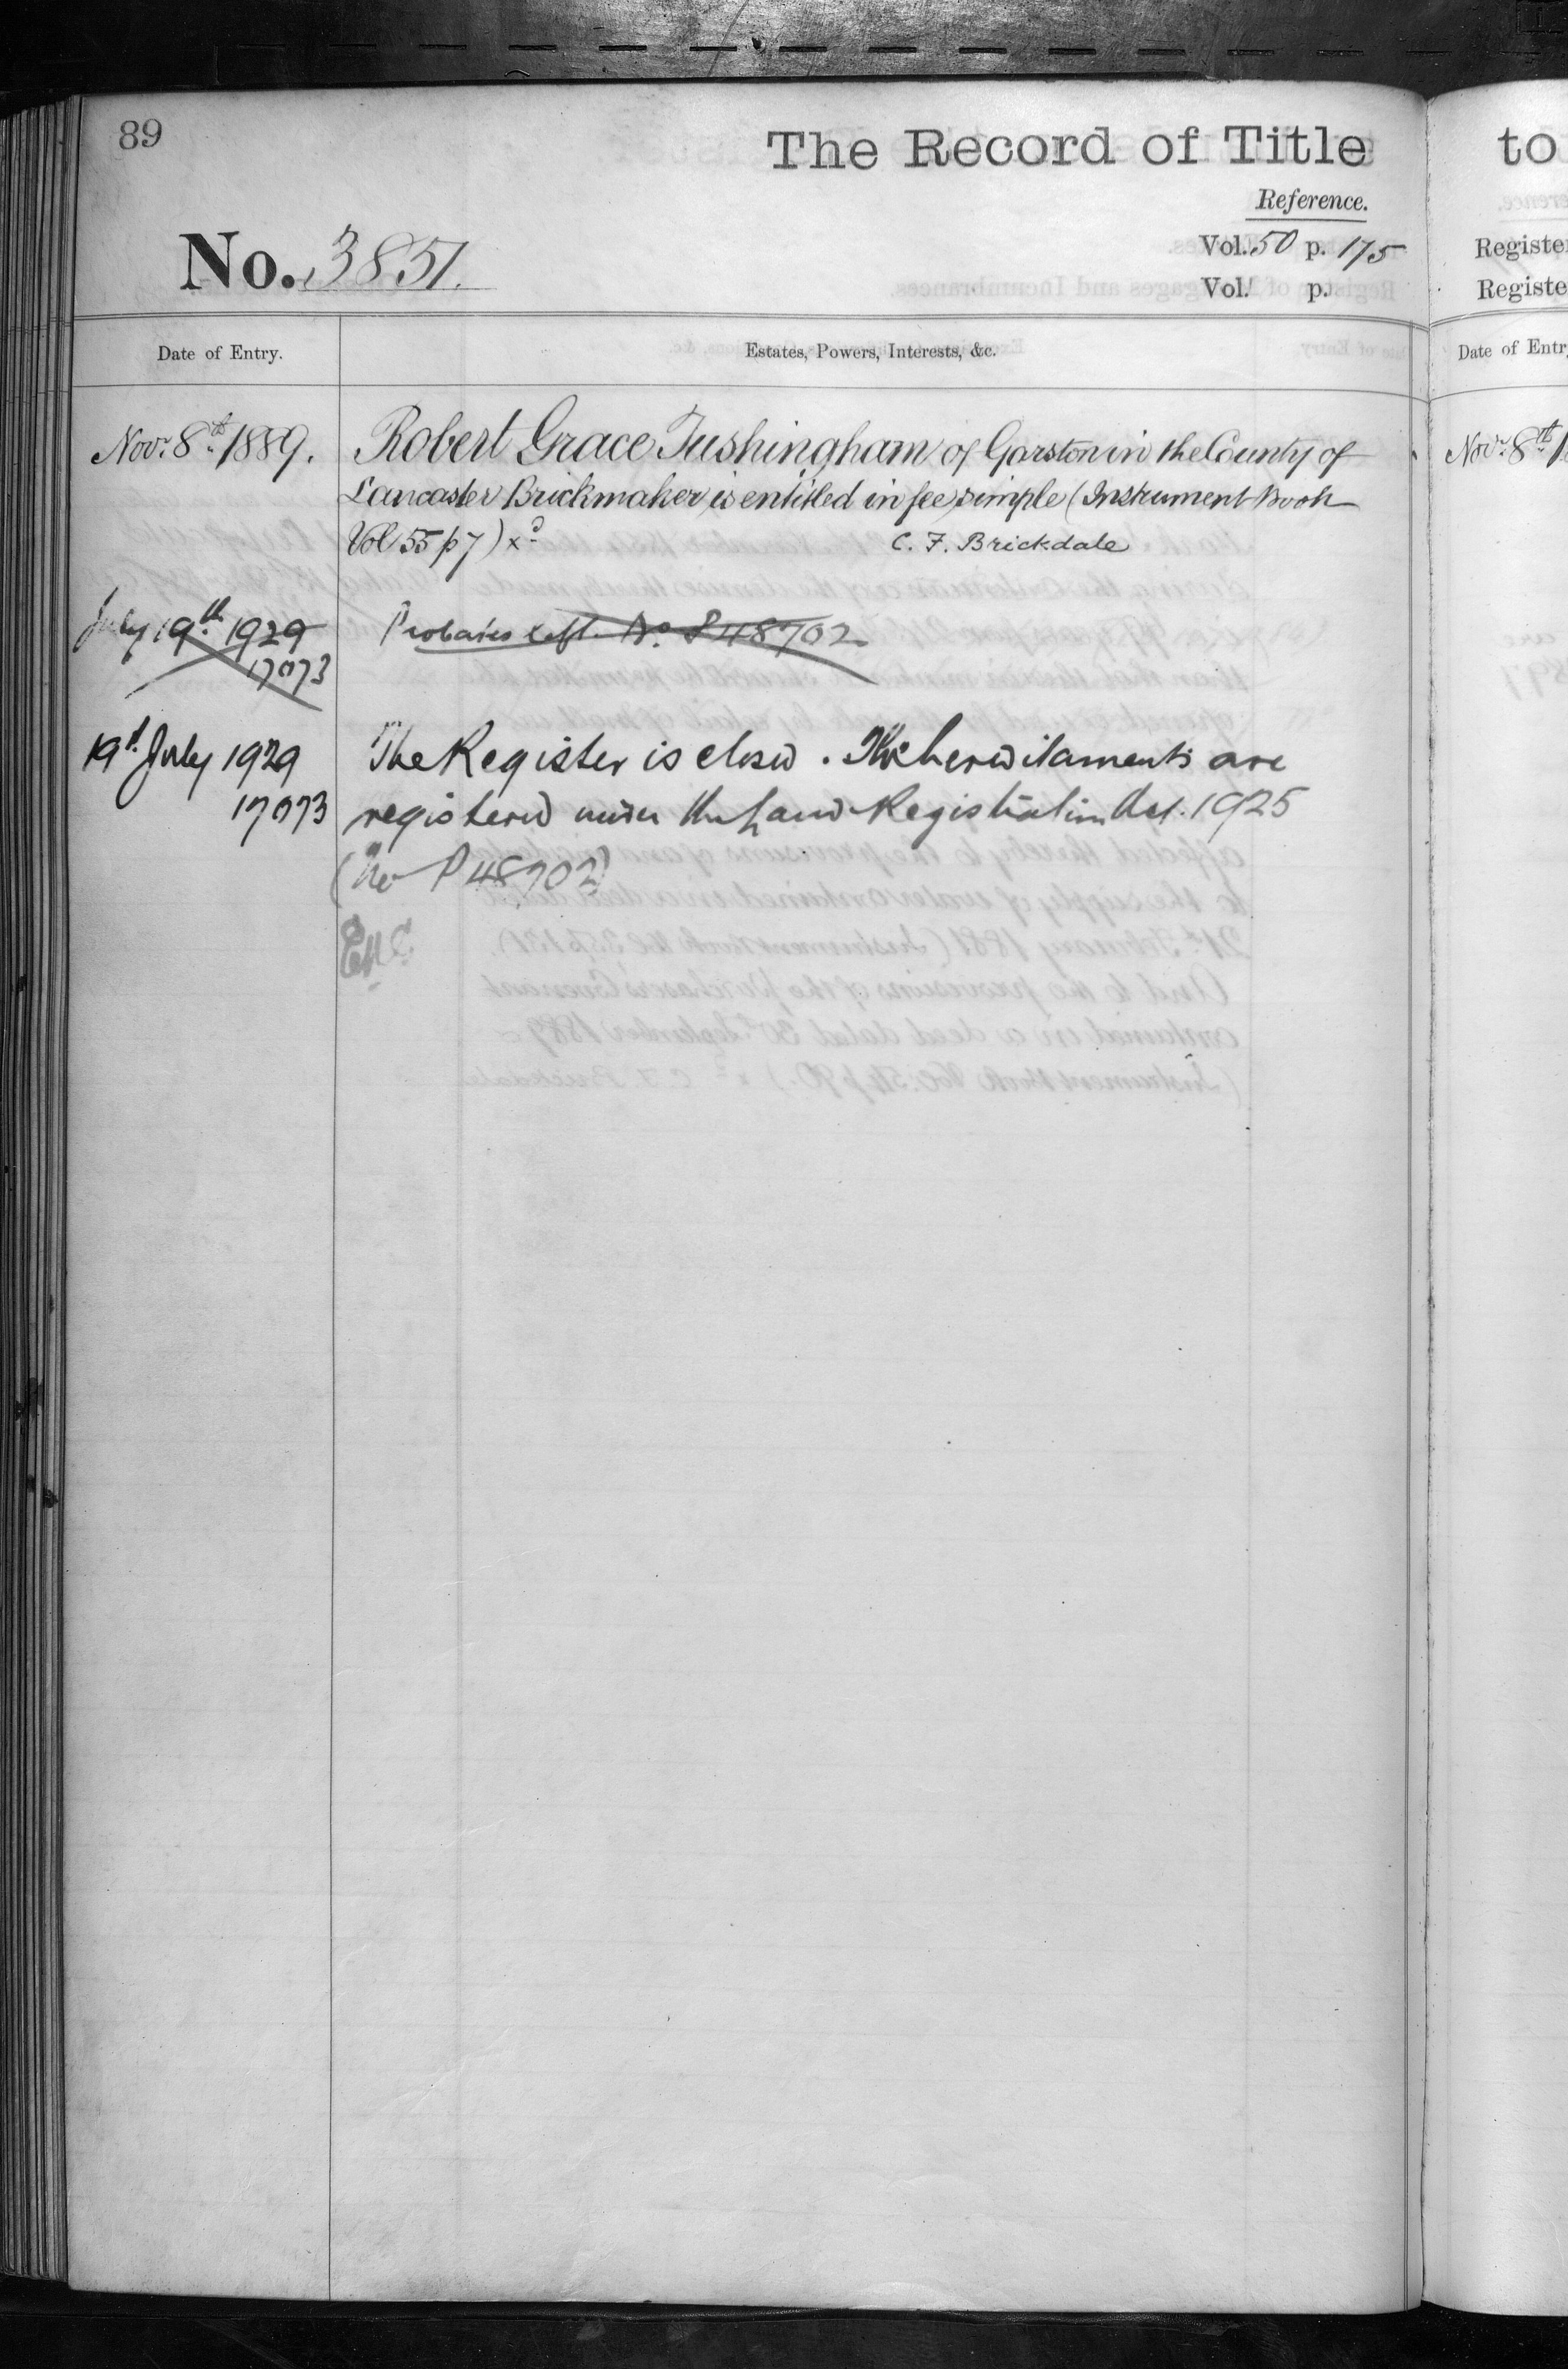 89
The Record of Title
to
Reference.
No. 3851.
Vol. 50 p. 175
Vol. p.
Registe
Registe
Date of Entry.
Estates, Powers, Interests, &c.
Date of Entr
Novr. 8th 1889.
Robert Grace Tushingham of Garston in the County of
Lancaster Brickmaker is entitled in fee simple (Instrument Book
Vol 55 p 7)
C. F. Brickdale
Novr. 8th 1
July 19th. 1929
17073
No. P48702
19th. July 1929
17073
The Register is closed. The hereditaments are
registered under the Land Registration Act. 1925
(No P48702)